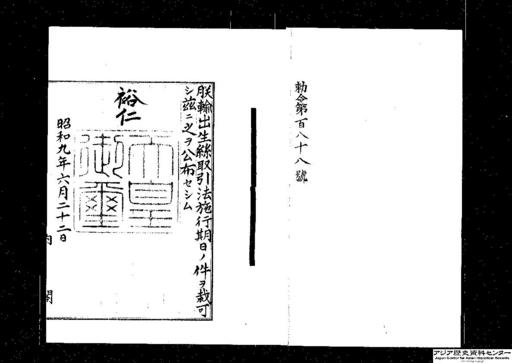 勅令第百八十八號
朕輸出生絲取引法施行期日ノ件ヲ裁可
シ茲ニ之ヲ公布セシム
裕仁
天皇御璽
昭和九年六月二十二日
内閣
アジア歴史資料センター
Japan Center for Asian Historical Records